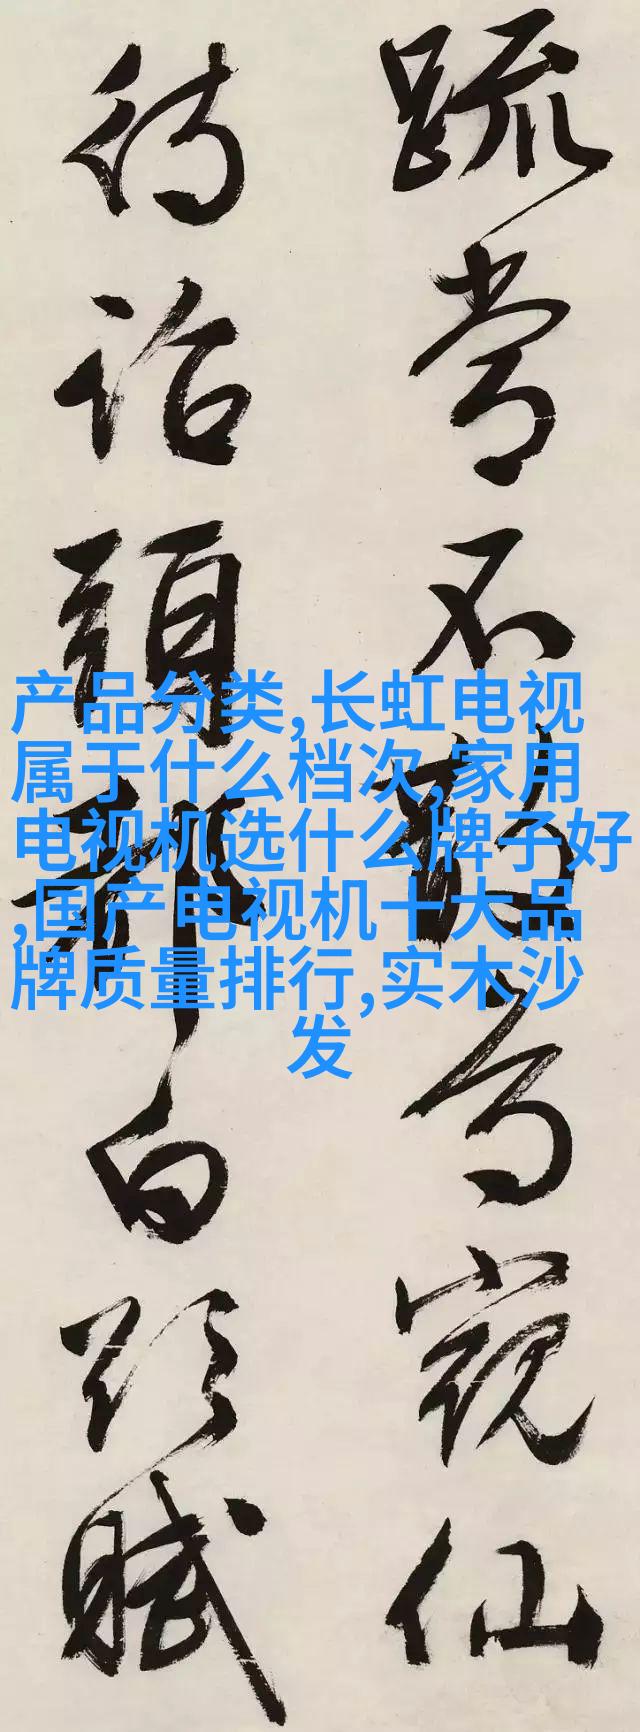 产品分类,长虹电视
属于什么档次,家用
电视机选什么牌子好
,国产电视机十大品
牌质量排行,实木沙
发
疏不仙
待詔頭白賦